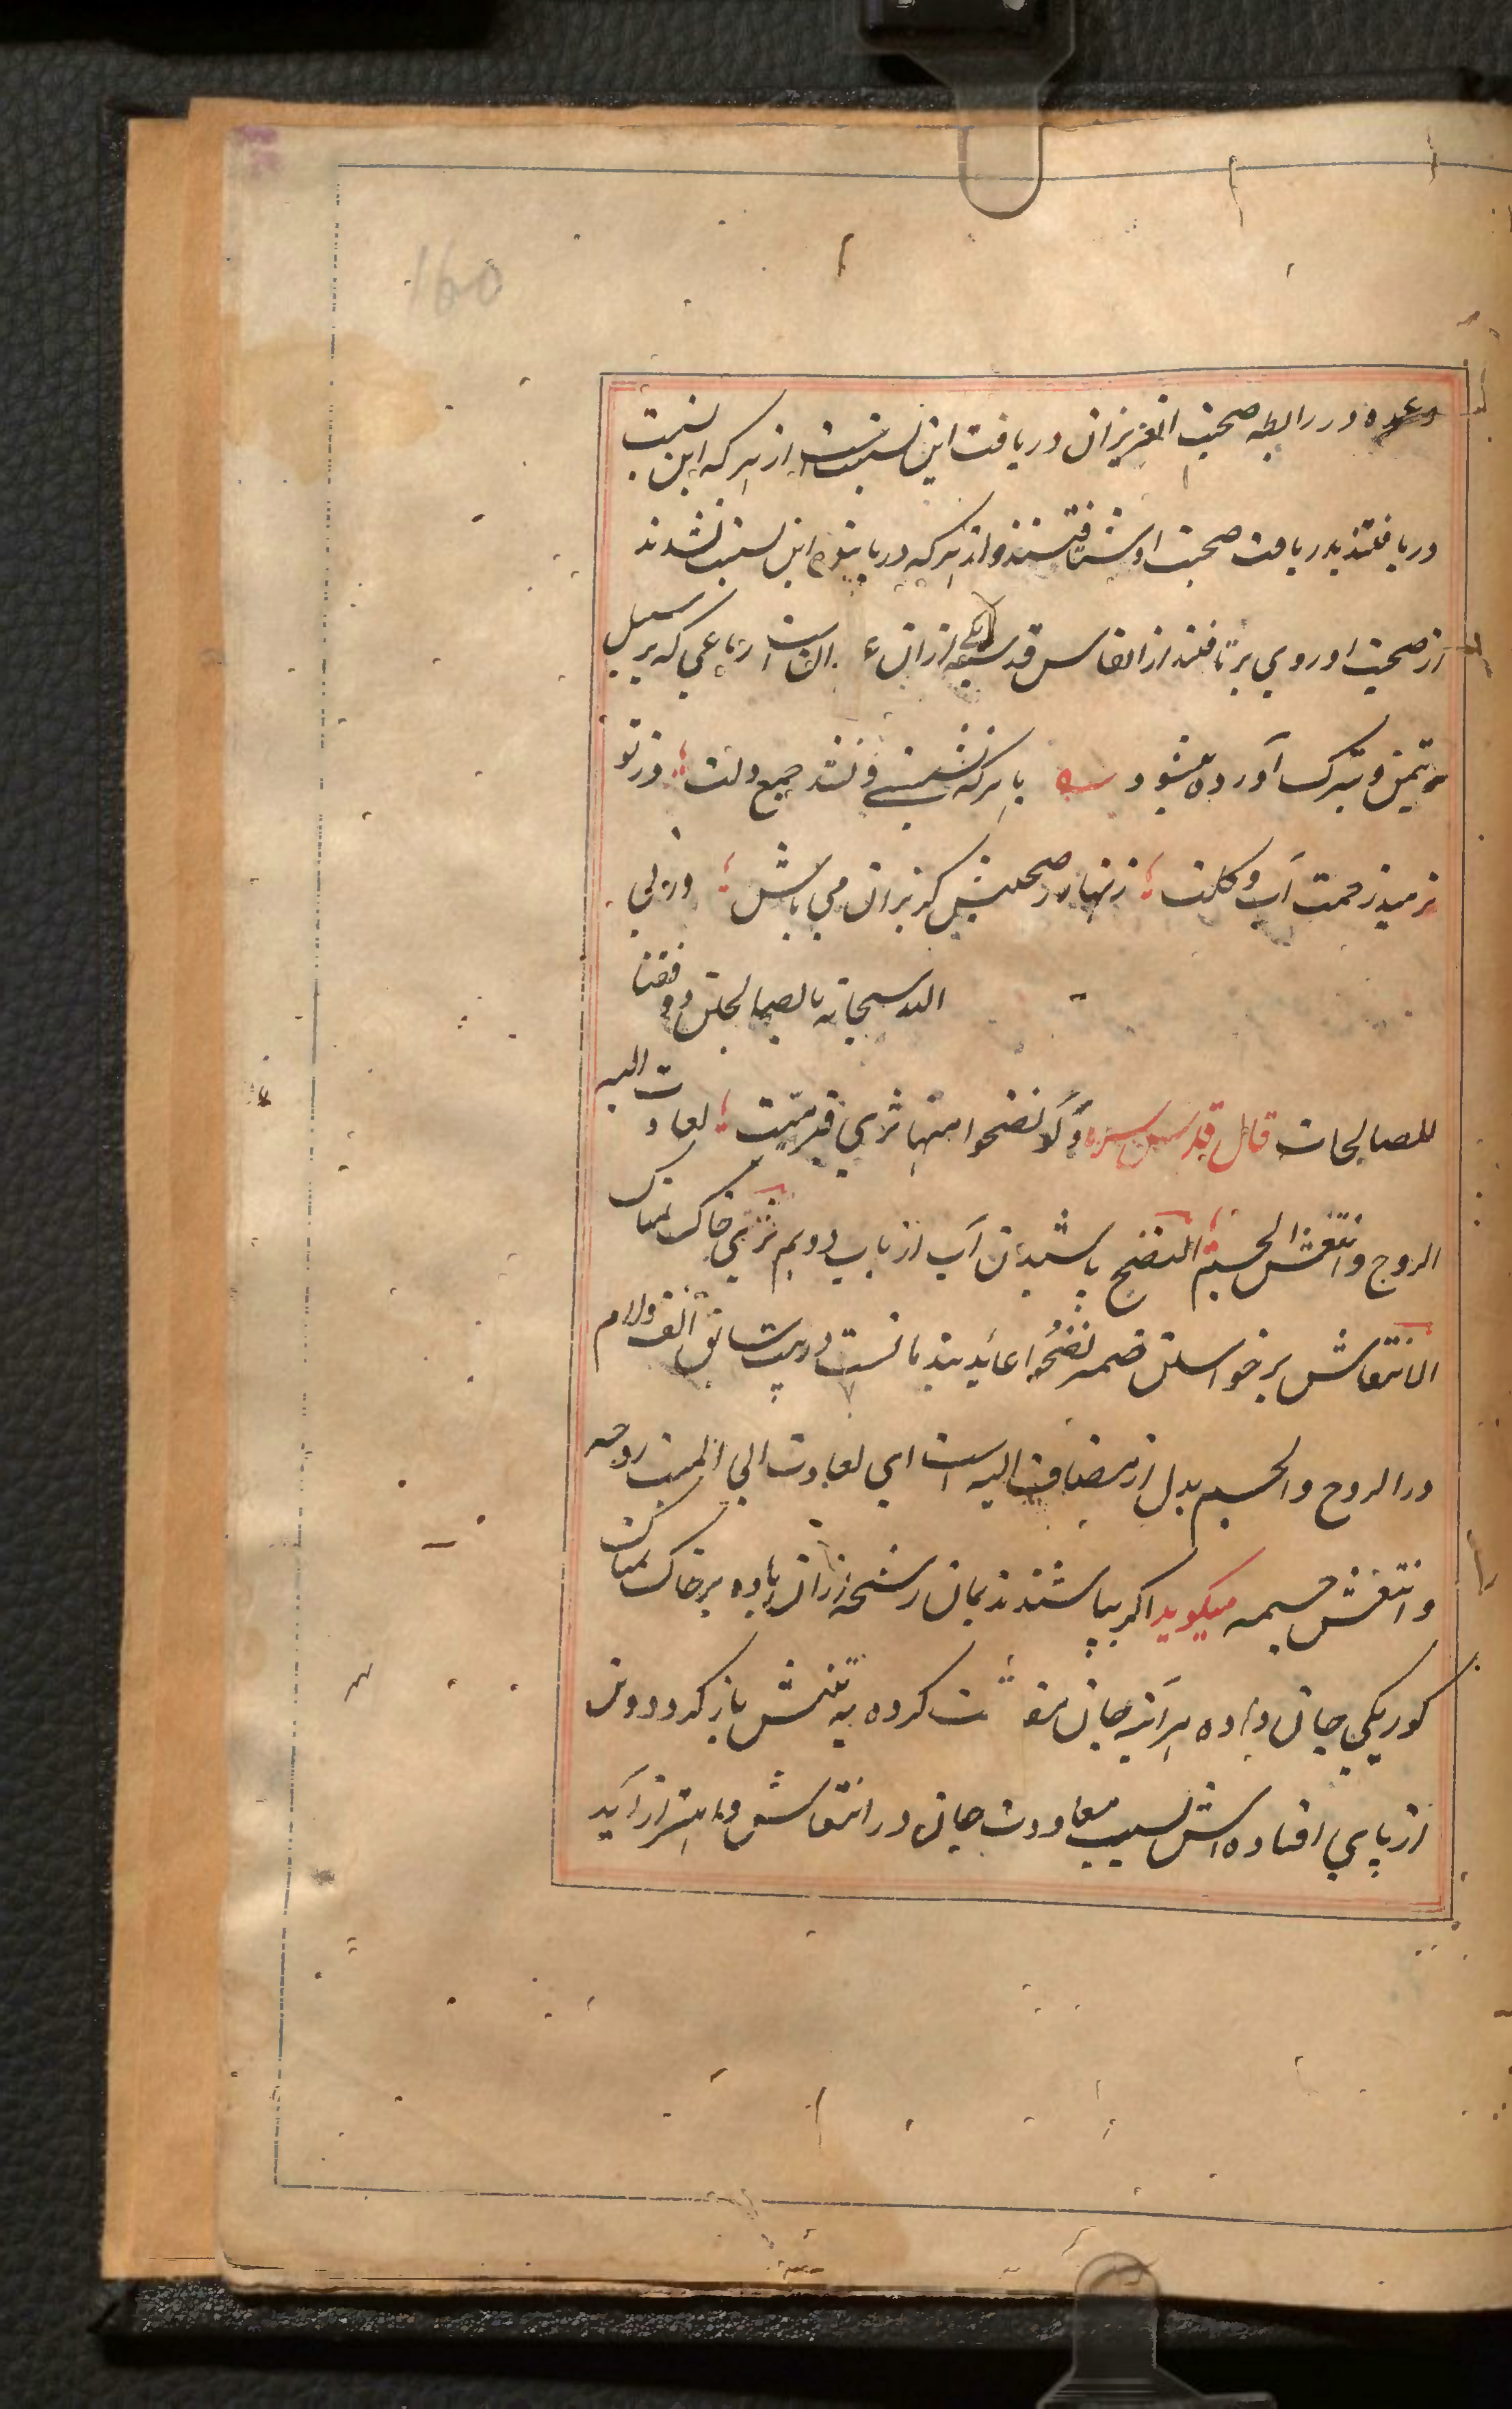 160
وعمده در رابطه صحبت این عزیزان دریافت این نسبتست از هر که این نسبت
دریافتند بدریافت صحبت او شتافتند و از هر که دریافتن این نسبت نشدند
از صحبت او روی برتافتند از انفاس قدسیه ازان است رباعی که بر سبیل
تیمن و تبرک آورده میشود با هر که نشینی و نشد جمع دلت وز تو
نرمید زحمت آب و گلت زنهار ز صحبتش گریزان می باش ورنی
الله سبحانه بالصالحین و وفقنا
للصالحات قال قدس سره و لو نضحوا منها ثری قبر میت لعادت الیه
الروح وانتعش الجسم النضح پاشیدن آب از باب دویم ثری خاک نمناک
الانتعاش برخواستن ضمیر نضحوا عائد بندمانست در بیت سابق الف ولام
در الروح والجسم بدل از مضاف الیه است ای لعادت الی المیت روحه
وانتعش جسمه میگوید اگر بپاشند ندیمان رشحه ازان باده بر خاک نمناک
گور یکی جان داده هر آینه جان کرده به تنش باز گردد و تن
از پای افتاده اش بسبب معاودت جان در انتعاش و اهتزاز آید